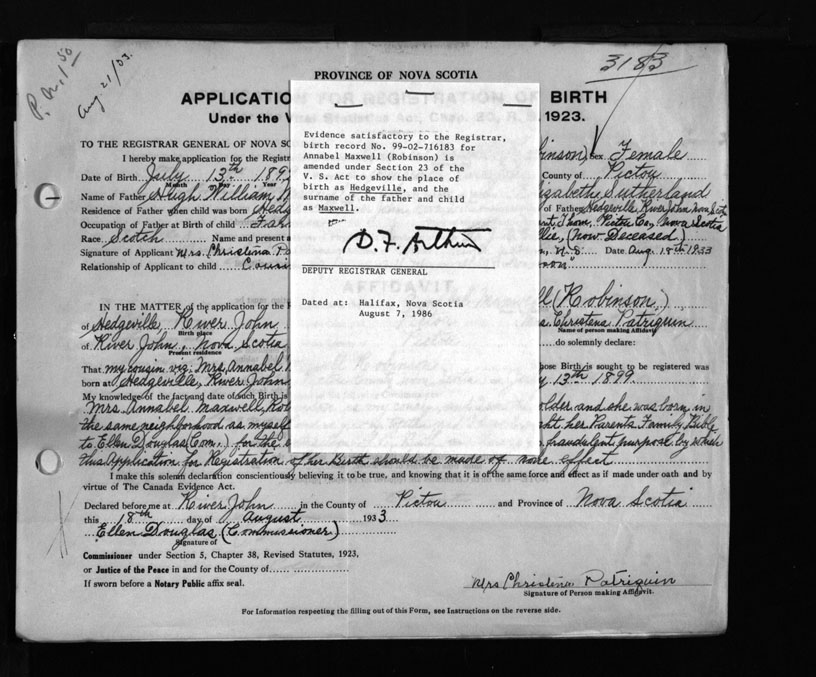 P.O. 1 50
Aug 21/33.
3183
PROVINCE OF NOVA SCOTIA
APPLICATION FOR REGISTRATION OF BIRTH
Under the V 1923.
TO THE REGISTRAR GENERAL OF NOVA SC
I hereby make application for the Registr binson) Sex Female
Date of Birth July 13th 189 County of Pictou
Month Day Year
Name of Father Hugh William M lizabeth Sutherland
Residence of Father when child was born Hedg of Father Hedgeville River John
Occupation of Father at Birth of child Pictou Co, Nova Scotia
Race Scotch Name and present a (now Deceased)
Signature of Applicant Mrs. Christena Pa N.S. Date Aug. 18th 1933
Relationship of Applicant to child Cousi
Evidence satisfactory to the Registrar,
birth record No. 99-02-716183 for
Annabel Maxwell (Robinson) is
amended under Section 23 of the
V. S. Act to show the place of
birth as Hedgeville, and the
surname of the father and child
as Maxwell.
D. F. Arthur
DEPUTY REGISTRAR GENERAL
Dated at: Halifax, Nova Scotia
August 7, 1986
AFFIDAVIT
IN THE MATTER of the application for the R ll (Robinson)
of Hedgeville River John s. Christena Patriquin
Birth place Name of person making Affidavit
of River John, Nova Scotia do solemnly declare:
Present residence
That my cousin viz: Mrs. Annabel hose Birth is sought to be registered was
born at Hedgeville, River John y 13th 1899.
My knowledge of the fact and date of such Birth is
Mrs. Annabel Maxwell, Rob older and she was born in
the same neighborhood as myself ht her Parents Family Bible
to Ellen Douglas (Com.) for the fraudulent purpose by which
this Application for Registration of her Birth should be made of none effect
I make this solemn declaration conscientiously believing it to be true, and knowing that it is of the same force and effect as if made under oath and by
virtue of The Canada Evidence Act.
Declared before me at River John in the County of Pictou and Province of Nova Scotia
this 18th day of August 1933
Ellen Douglas (Commissioner)
Signature of
Commissioner under Section 5, Chapter 38, Revised Statutes, 1923,
or Justice of the Peace in and for the County of
If sworn before a Notary Public affix seal.
Mrs Christena Patriquin
Signature of Person making Affidavit.
For Information respecting the filling out of this Form, see Instructions on the reverse side.